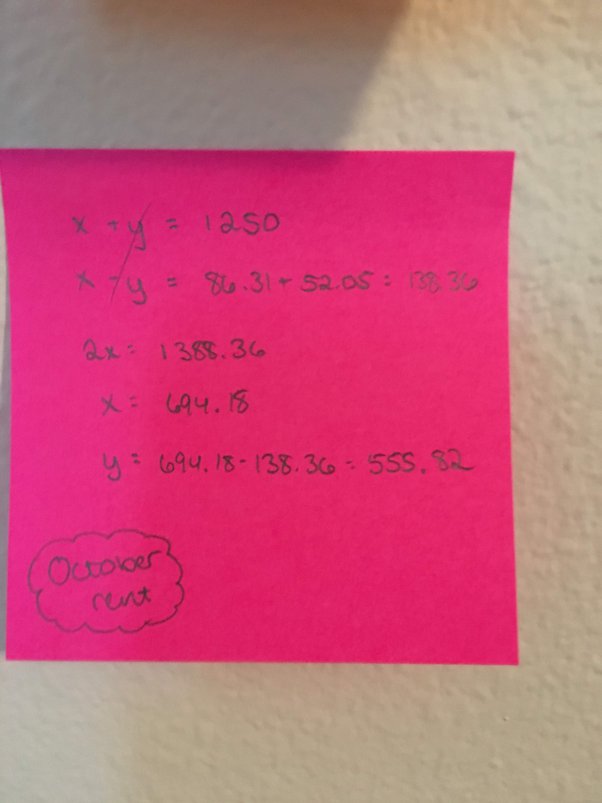 x + y = 1250
x - y = 86.31 + 52.05 = 138.36
2x = 1388.36
x = 694.18
y = 694.18 - 138.36 = 555.82
October
rent